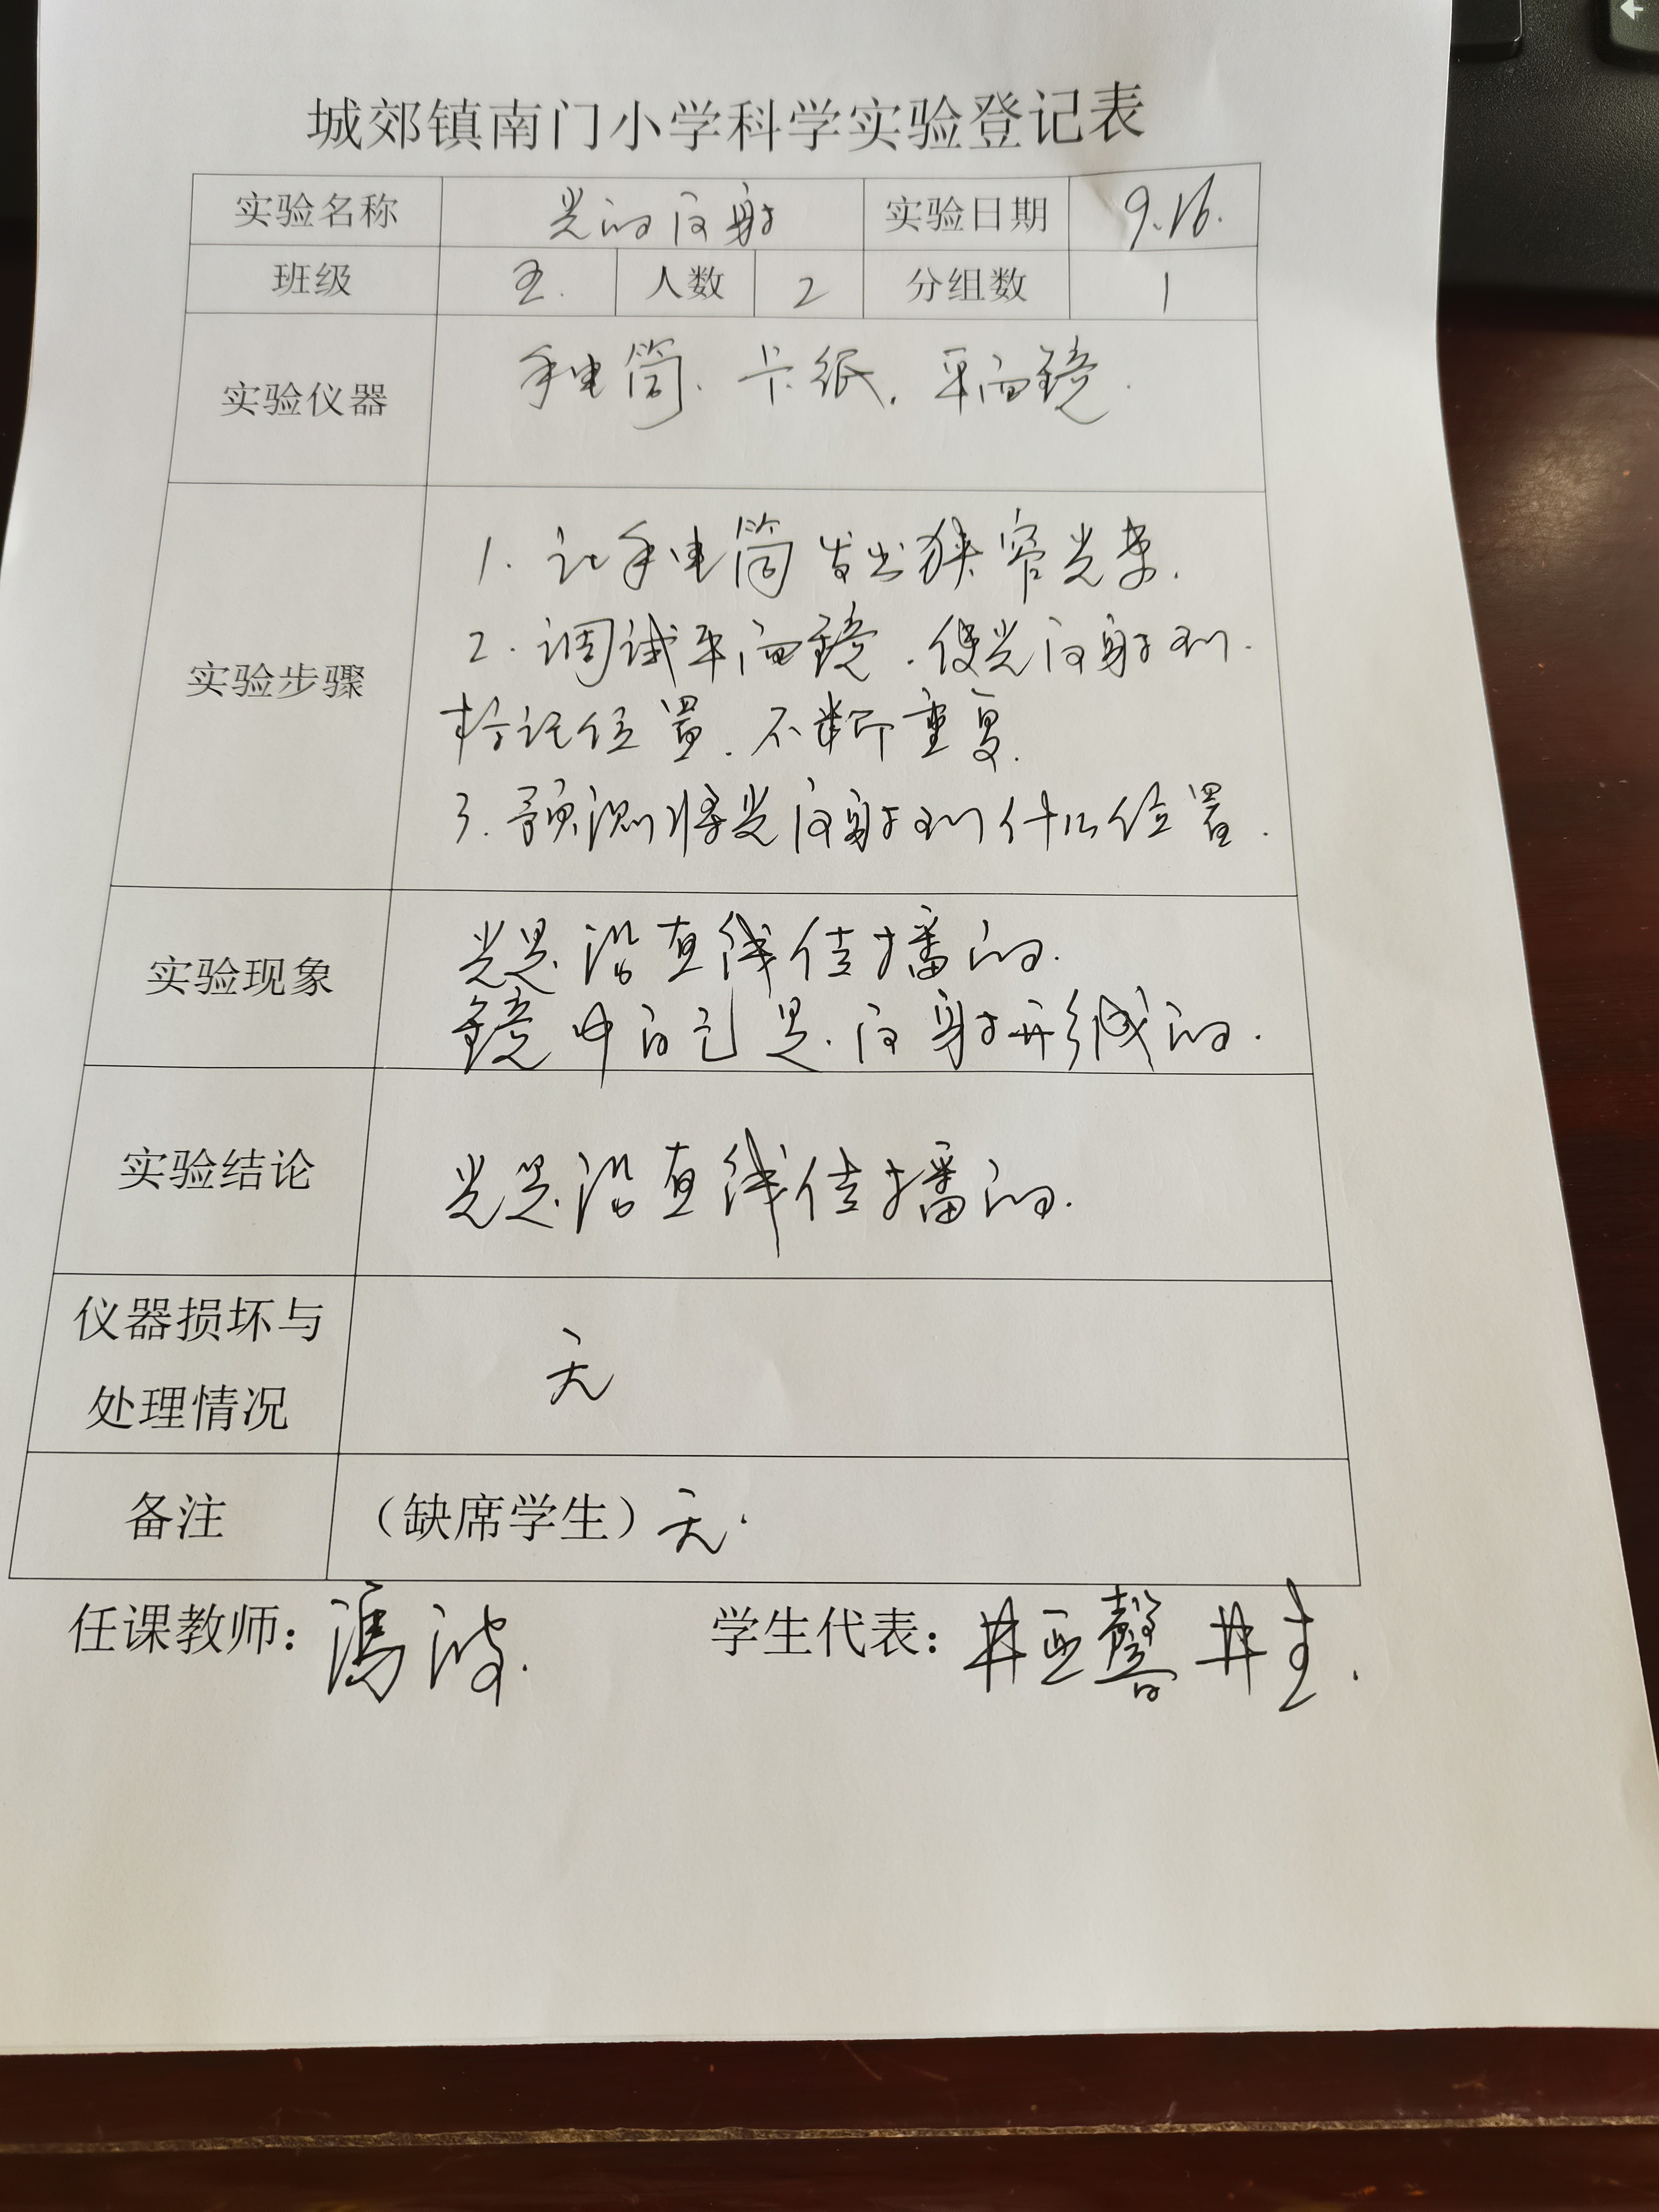 城郊镇南门小学科学实验登记表
实验名称 光的反射 实验日期 9.16.
班级 五. 人数 2 分组数 1
实验仪器 手电筒、卡纸、平面镜.
实验步骤
1. 让手电筒发出狭窄光束.
2. 调试平面镜,使光反射到.
标记位置.不断重复.
3. 预测将光反射到什么位置.
实验现象
光是沿直线传播的.
镜中自己是反射形成的.
实验结论 光是沿直线传播的.
仪器损坏与
处理情况
无
备注 (缺席学生)无.
任课教师:冯波. 学生代表:井亚馨 井